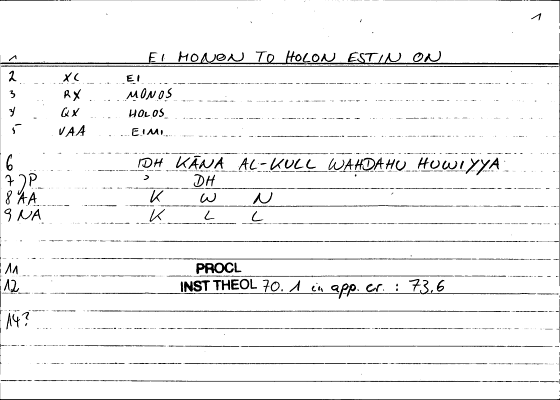 1
1 EI MONON TO HOLON ESTIN ON
2 XC EI
3 RX MONOS
4 QX HOLOS
5 VAA EIMI
6 IDH KĀNA AL-KULL WAHDAHU HUWIYYA
7 JP ʾ DH
8 AA K W N
9 NA K L L
11 PROCL
12 INST THEOL 70. 1 in app. cr. : 73,6
14?